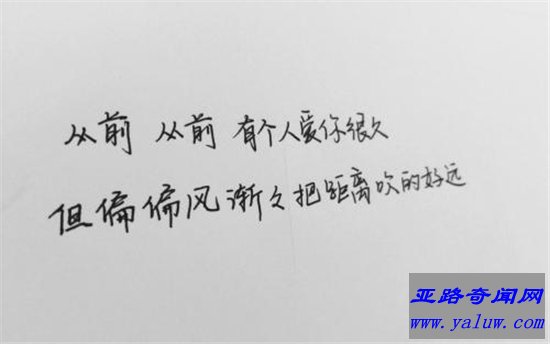 从前 从前 有个人爱你很久
但偏偏风渐々把距离吹的好远
亚路奇闻网
www.yaluw.com